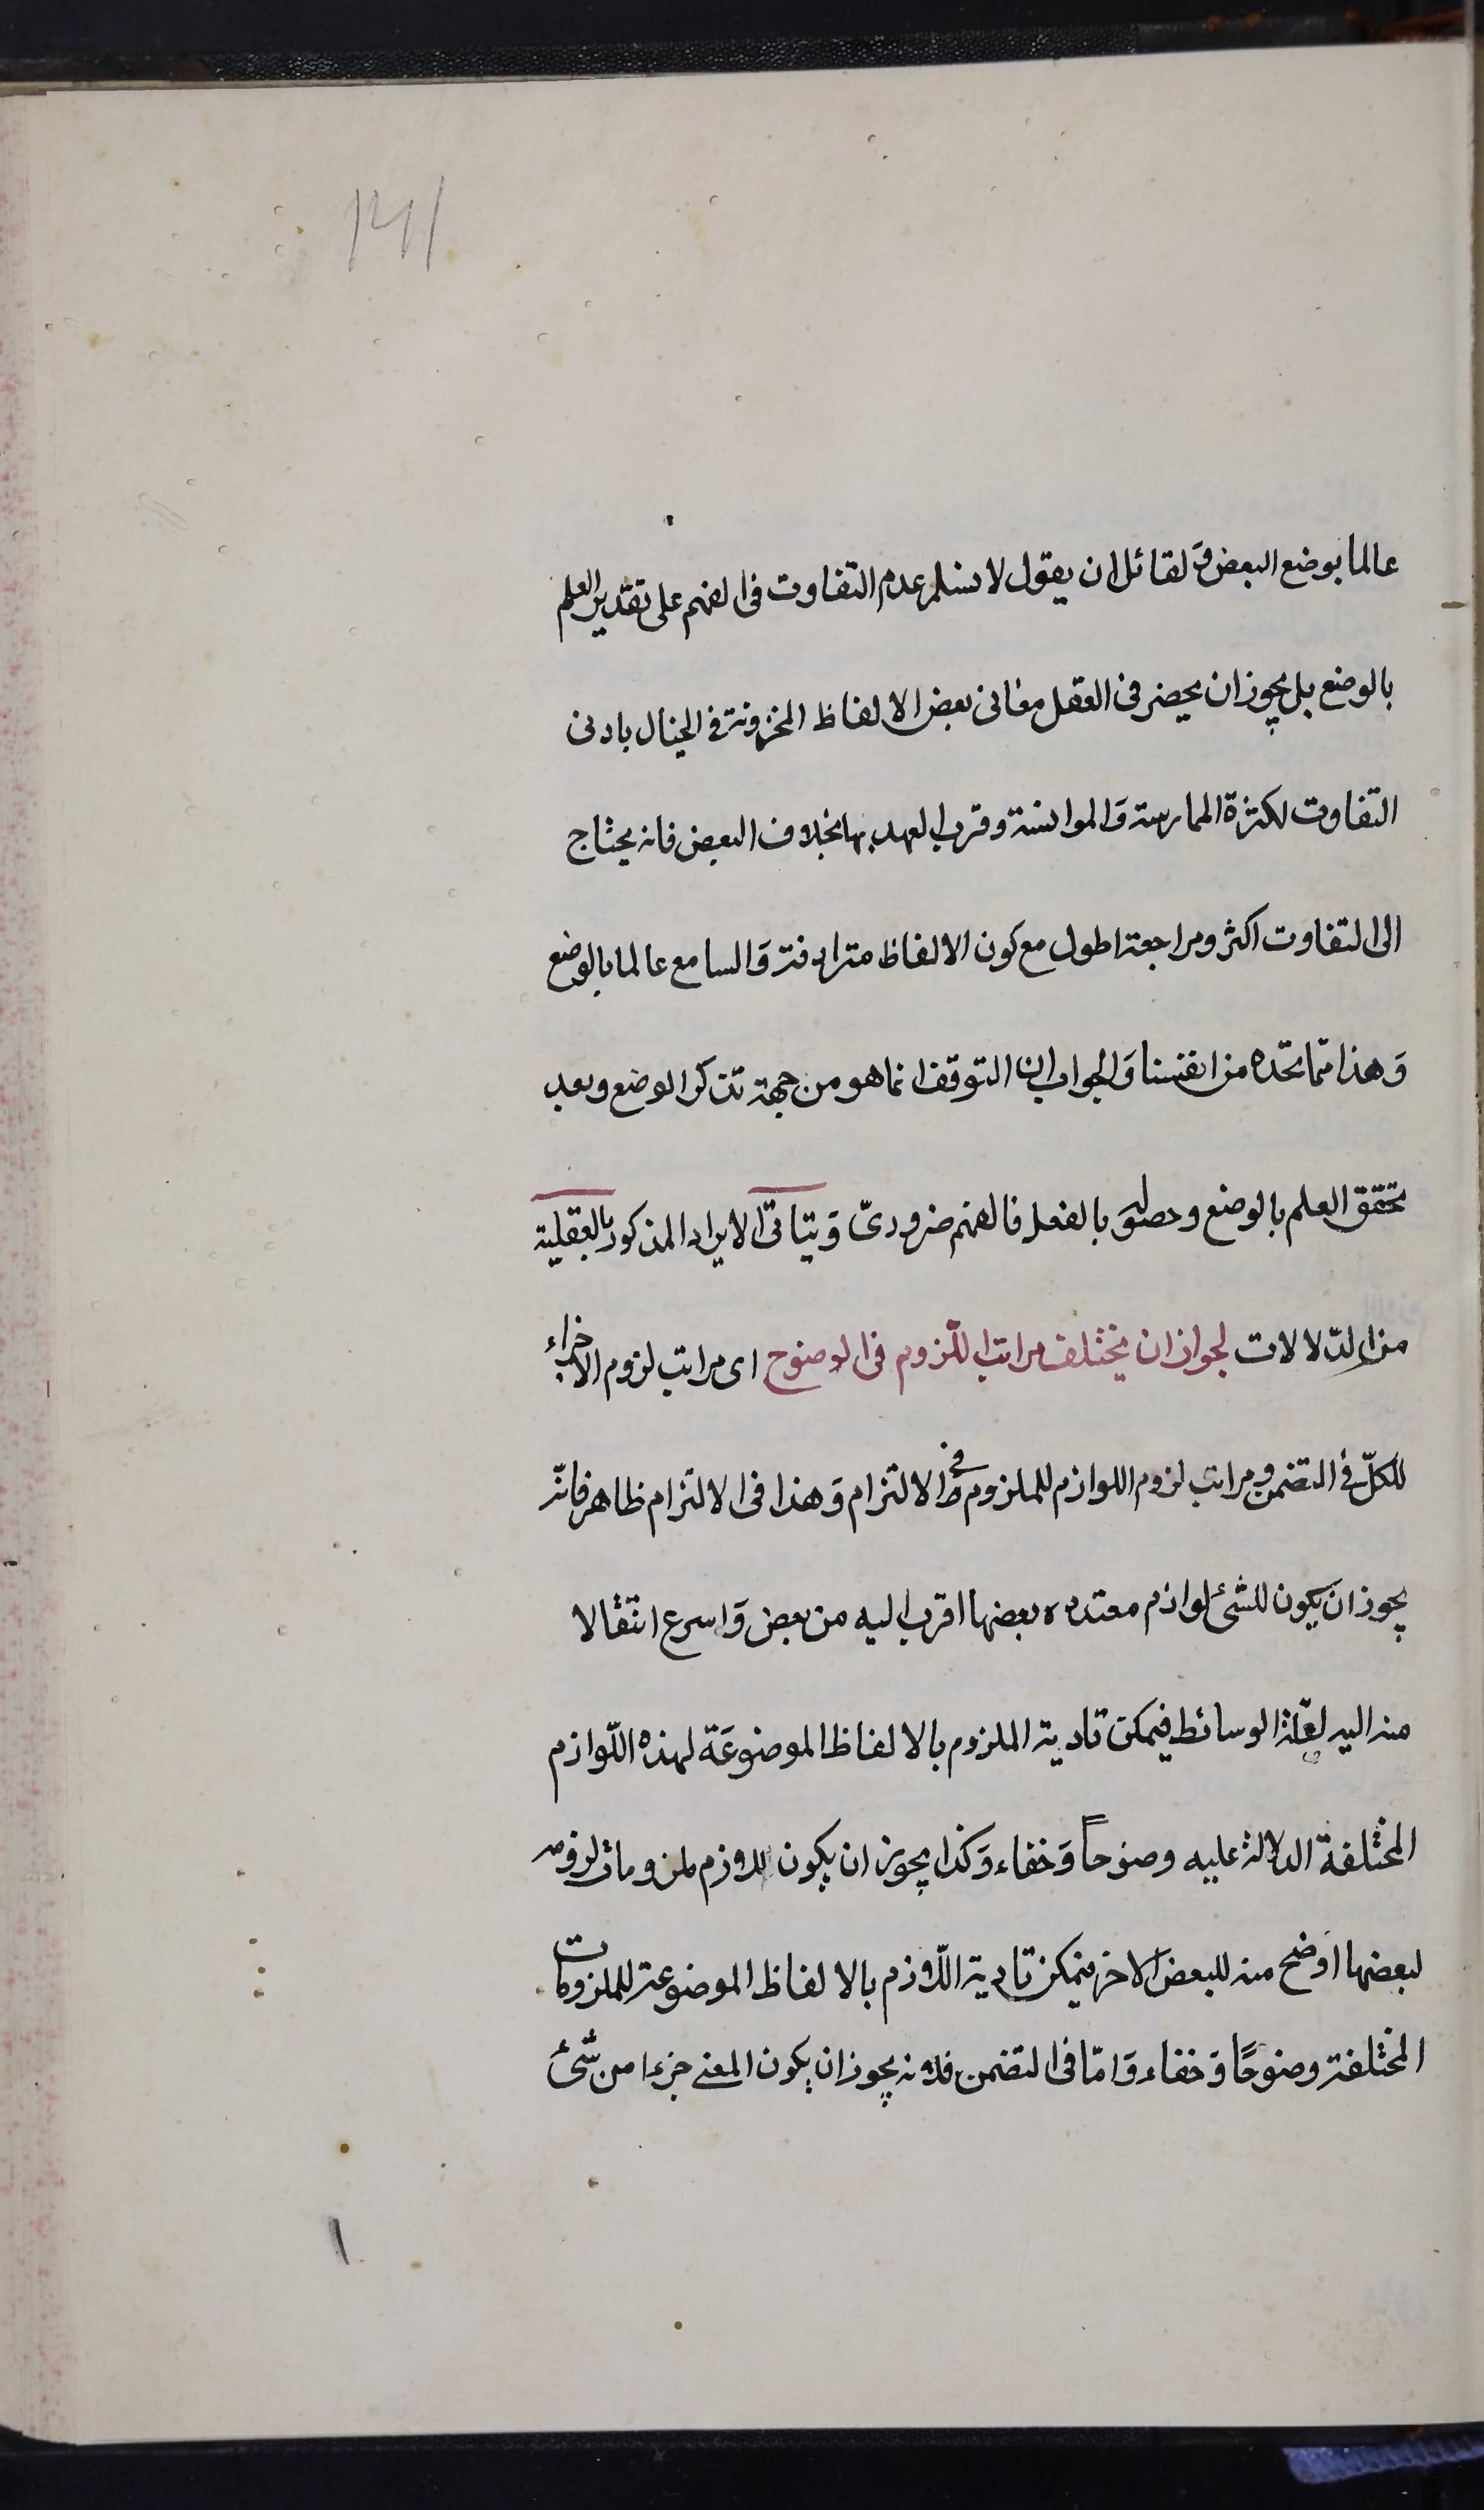 ١٣١
عالما بوضع البعض و لقائل ان يقول لا نسلم عدم التفاوت فى الفهم على تقدير العلم
بالوضع بل يجوز ان يحضر فى العقل معانى بعض الالفاظ المخزونة فى الخيال بادنى
التفاوت لكثرة الممارسة وَالموانسة و قرب العهد بها بخلاف البعض فانه يحتاج
الى التفاوت اكثر و مراجعة اطول مع كون الالفاظ مترادفة وَالسامع عالما بالوضع
وَهذا ممّا نجده من انفسنا وَالجواب ان التوقف انما هو من جهة تذكر الوضع و بعد
تحقق العلم بالوضع و حصوله بالفعل فالفهم ضرورىّ وَيتاتّى الايراد المذكور بالعقلية
من الدّلالات لجواز ان يختلف مراتب اللّزوم فى الوضوح اى مراتب لزوم الاجزاء
للكلّ فى التضمن و مراتب لزوم اللوازم للملزوم فى الالتزام وَهذا فى الالتزام ظاهر فانّه
يجوز ان يكون للشئ لوازم معتدده بعضها اقرب اليه من بعض وَاسرع انتقالا
منه اليه لقلّة الوسائط فيمكن تادية الملزوم بالالفاظ الموضوعَة لهذه اللّوازم
المختلفة الدلالة عليه وضوحاً وَخفاء وَكذا يجوز ان يكون للازم ملزومات لزومه
لبعضها اوضح منه للبعض الاخر فيمكن تادية اللّازم بالالفاظ الموضوعة للملزومات
المختلفة وضوحًا وَخفاء وَامّا فى التضمن فلانه يجوز ان يكون المعنى جزءا من شئ